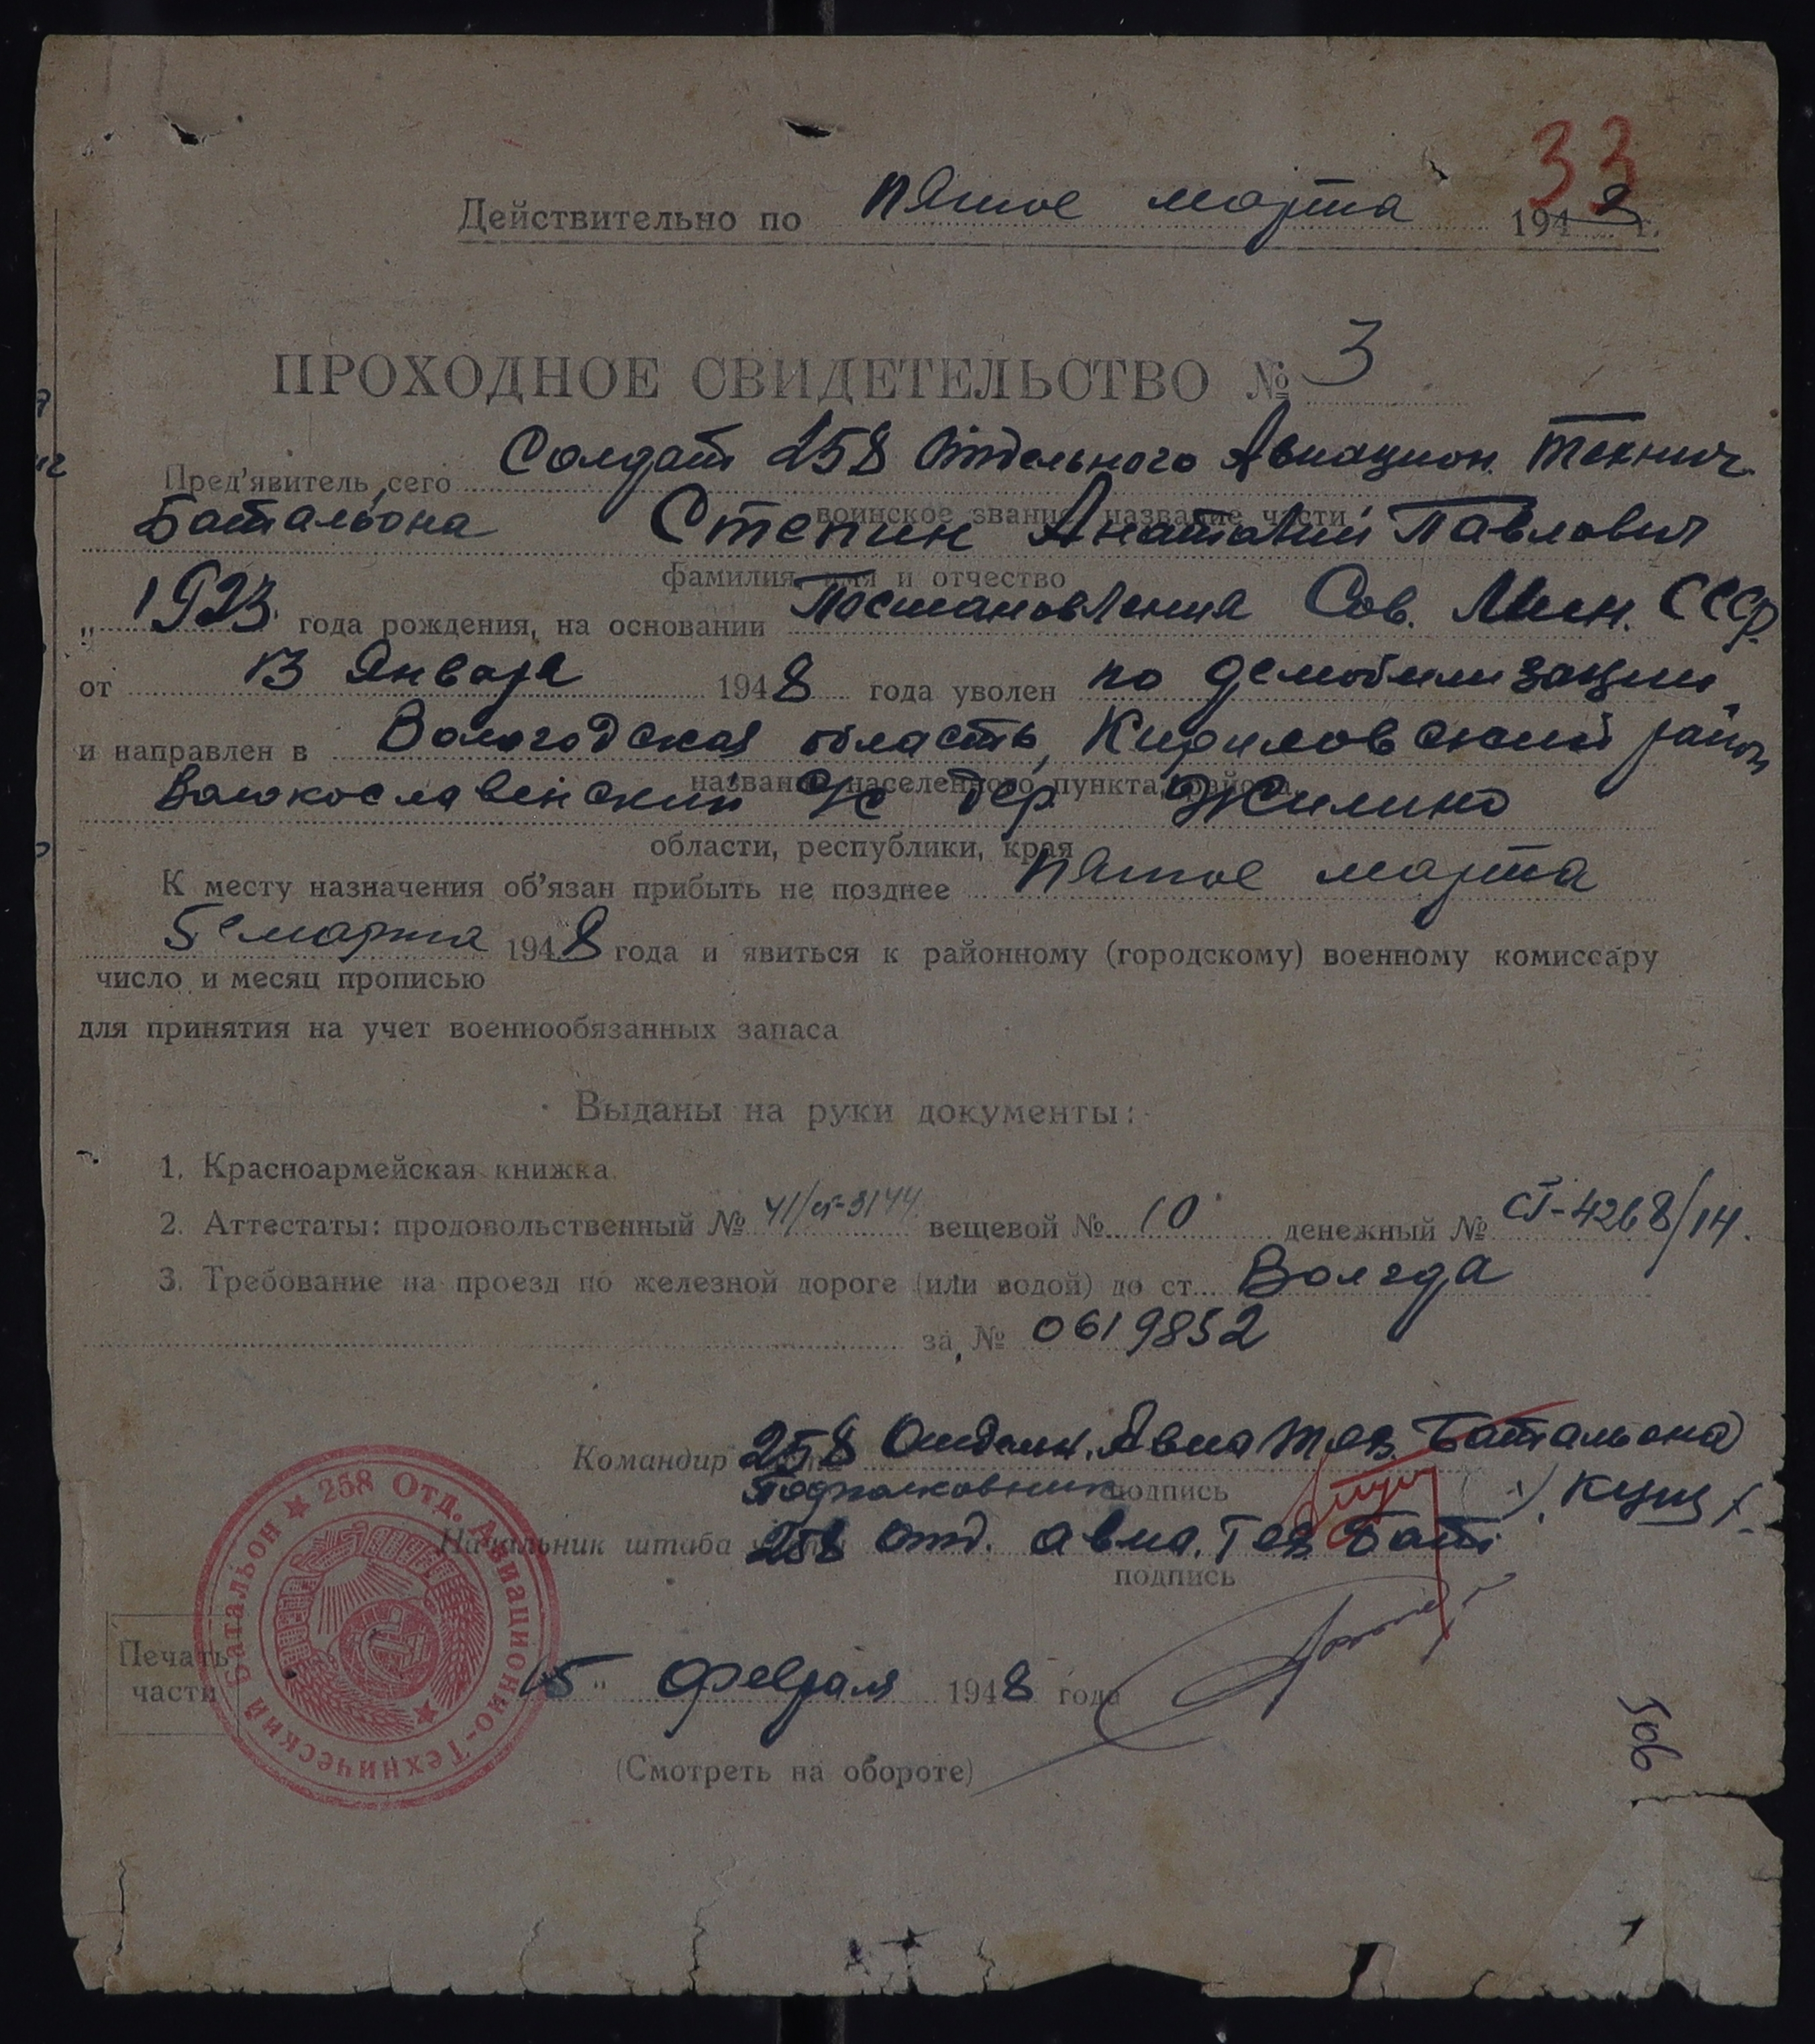 33
Действительно по пятое марта 1948 г.
ПРОХОДНОЕ СВИДЕТЕЛЬСТВО № 3
Пред'явитель сего Солдат 258 Отдельного Авиацион. Технич.
воинское звание, название части
Батальона Степин Анатолий Павлович
фамилия, имя и отчество
„ 1923 года рождения, на основании Постановления Сов. Мин. СССР
от 13 Января 1948 года уволен по демобилизации
и направлен в Вологодская область, Кириловский район
название населенного пункта, района,
Волокославенский с/с дер Жилино
области, республики, края
К месту назначения об'язан прибыть не позднее пятое марта
5е марта 1948 года и явиться к районному (городскому) военному комиссару
число и месяц прописью
для принятия на учет военнообязанных запаса
Выданы на руки документы:
1. Красноармейская книжка.
2. Аттестаты: продовольственный № вещевой № 10 денежный № СТ-4268/14.
3. Требование на проезд по железной дороге (или водой) до ст. Волгда
за № 0619852
Командир 258 Отдельн. Авиа Тех. Батальона
Подполковник подпись /. Кущ /.
Начальник штаба 258 отд. авиа. Тех Бат.
подпись
Печать части
258 Отд. Авиационно-Технический Батальон
15 " февраля 1948 года
(Смотреть на обороте)
506